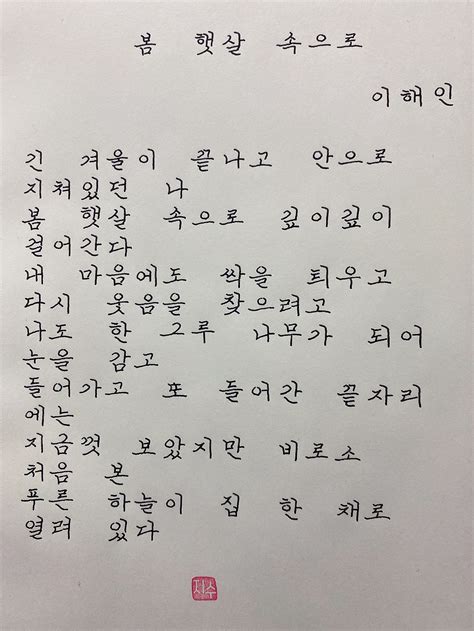 봄 햇살 속으로
이해인
긴 겨울이 끝나고 안으로
지쳐있던 나
봄 햇살 속으로 깊이깊이
걸어간다
내 마음에도 싹을 틔우고
다시 웃음을 찾으려고
나도 한 그루 나무가 되어
눈을 감고
들어가고 또 들어간 끝자리
에는
지금껏 보았지만 비로소
처음 본
푸른 하늘이 집 한 채로
열려 있다